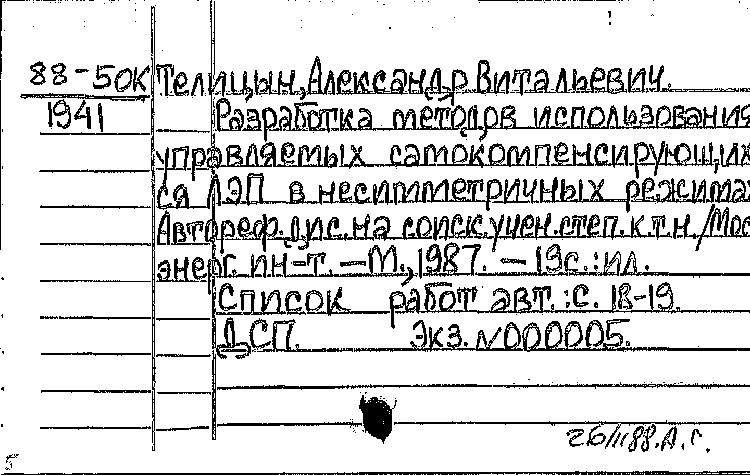 88-50К Телицын, Александр Витальевич.
1941 Разработка методов использования
управляемых самокомпенсирующих
ся ЛЭП в несимметричных режимах
Автореф. дис. на соиск. учен. степ. к.т.н. /Мос
энерг. ин-т. — М., 1987. — 19с.: ил.
Список работ авт.: с. 18-19.
ДСП. Экз. N000005.
26/II 88. А.Г.
5